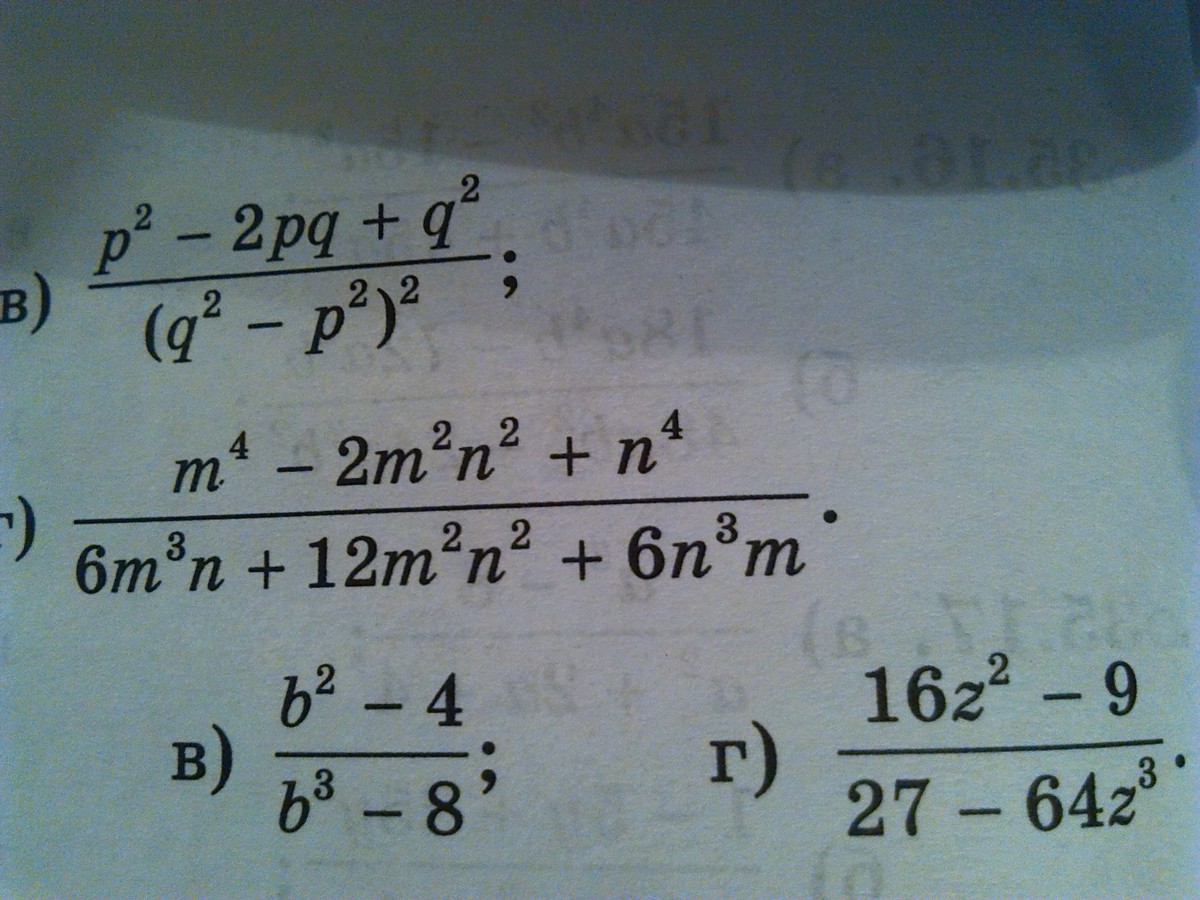 в) p² − 2pq + q² / (q² − p²)² ;
г) m⁴ − 2m²n² + n⁴ / 6m³n + 12m²n² + 6n³m .
в) b² − 4 / b³ − 8 ; г) 16z² − 9 / 27 − 64z³ .